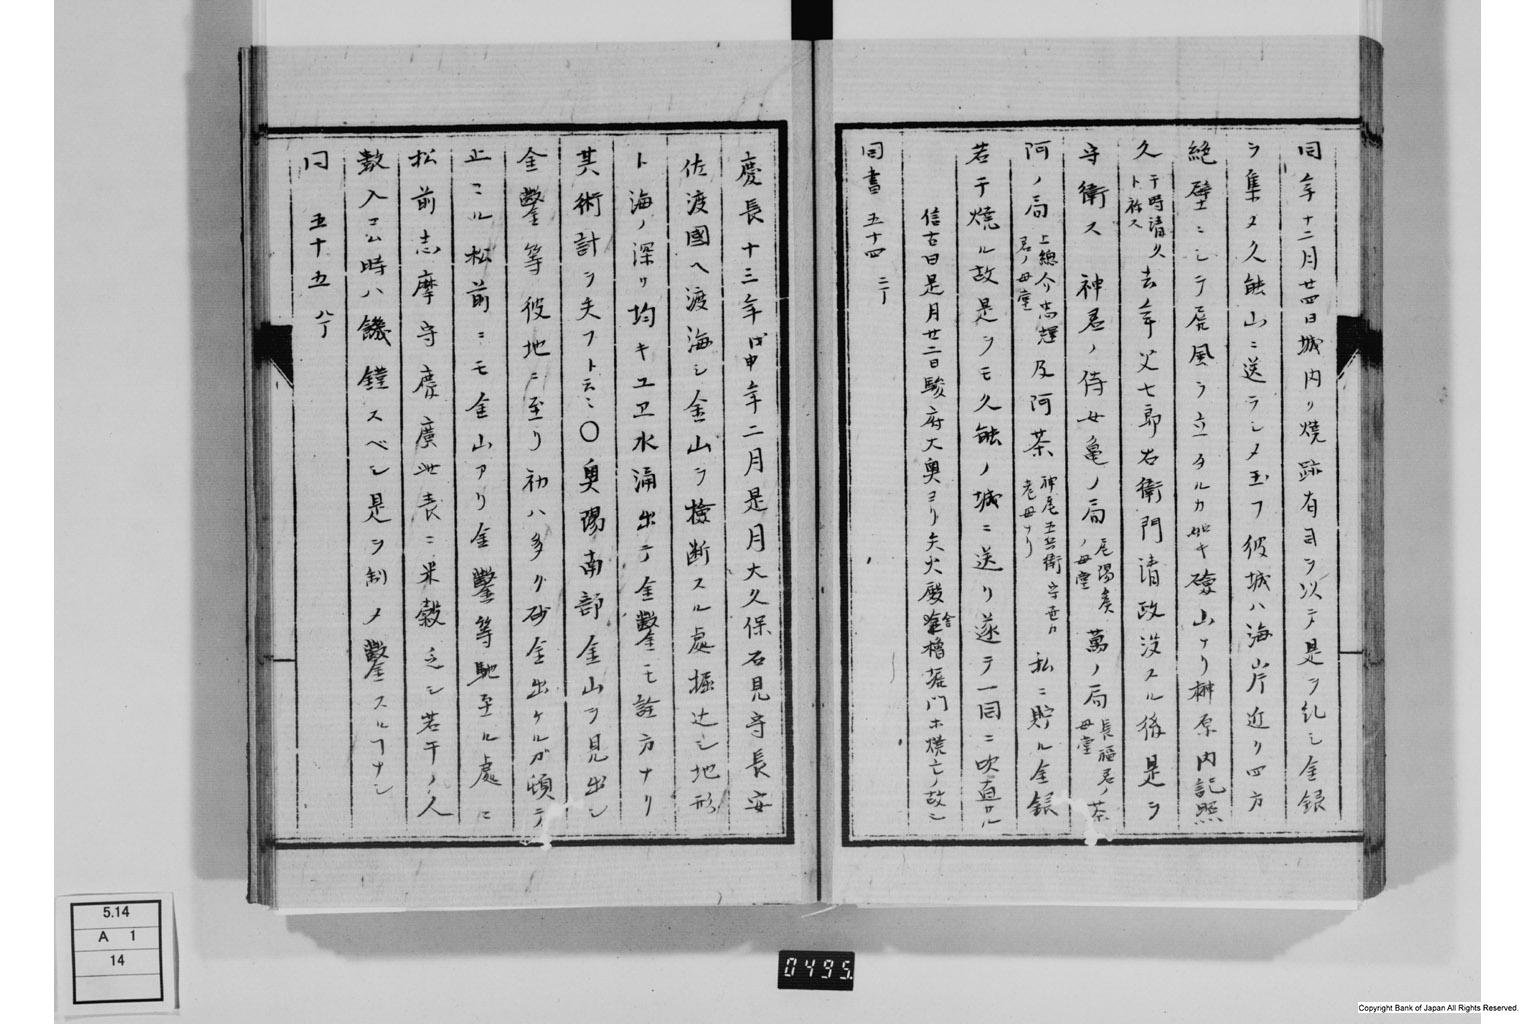 同年十二月廿四日城内ノ燒跡有司ヲ以テ是ヲ糺シ金銀
ヲ集メ久能山ニ送ラシメ玉フ彼城ハ海岸近ク四方
絶壁ニシテ屏風ヲ立タルカ如キ嶮山ナリ榊原内記照
久于時清久ト称ス去年父七郎右衛門清政没スル後是ヲ
守衛ス 神君ノ侍女亀ノ局尾陽矦ノ母堂萬ノ局長福君ノ母堂茶
阿ノ局上總介忠輝君ノ母堂及阿茶神尾五兵衛守世カ老母ナリ私ニ貯ル金銀
若干燒ル故是ヲモ久能ノ城ニ送リ遂テ一同ニ吹直サル
信古曰是月廿二日駿府大奥ヨリ失火殿櫓門ホ燒亡ノ故シ
同書 五十四 二丁
慶長十三年戊申年二月是月大久保石見守長安
佐渡國ヘ渡海シ金山ヲ檢断スル處掘シ地形
ト海ノ深リ均キユヱ水涌出テ金鑿モ詮方ナリ
其術計ヲ失フト云々〇奥陽南部金山ヲ見出シ
金鑿等彼地ニ至リ初ハ多ク砂金出ケルガ頓テ
止ニル松前ニモ金山アリ金鑿等馳至ル處ニ
松前志摩守慶廣此表ニ米穀乏シ若干ノ人
数入コム時ハ饑饉スベシ是ヲ制メ鑿スルコナシ
同 五十五 八丁
5.14
A 1
14
0495
Copyright Bank of Japan All Rights Reserved.